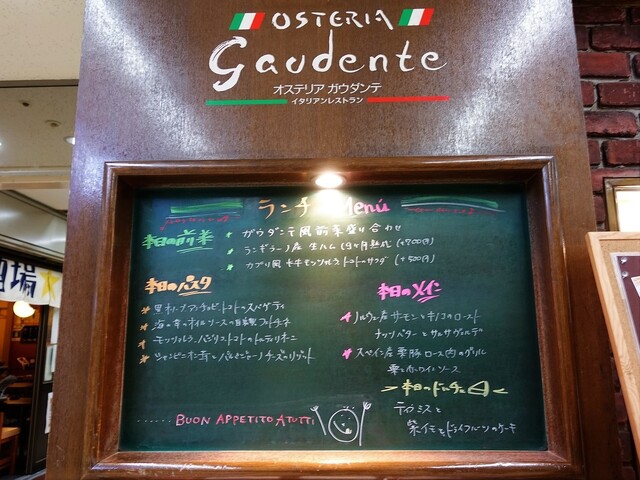 OSTERIA
Gaudente
オステリア ガウダンテ
イタリアンレストラン
ランチ Menú
本日の前菜
ガウダンテ風前菜盛り合わせ
ランギラーノ産 生ハム 19ヶ月熟成 (+700円)
カプリ風 水牛モッツァレラ、トマトのサラダ (+500円)
本日のパスタ
黒オリーブ、アンチョビ、トマトのスパゲティ
海の幸のオイルソースの自家製フェトチーネ
モッツァレラ、バジリコ、トマトのトルティリオーニ
シャンピニオン茸とパルミジャーノチーズのリゾット
本日のメイン
ノルウェー産 サーモンとキノコのロースト
ナッツバターとサルサヴェルデ
スペイン産 栗豚ロース肉のグリル
栗とホワイトソース
本日のドルチェ
ティラミスと
紫イモとドライフルーツのケーキ
BUON APPETITO A TUTTI